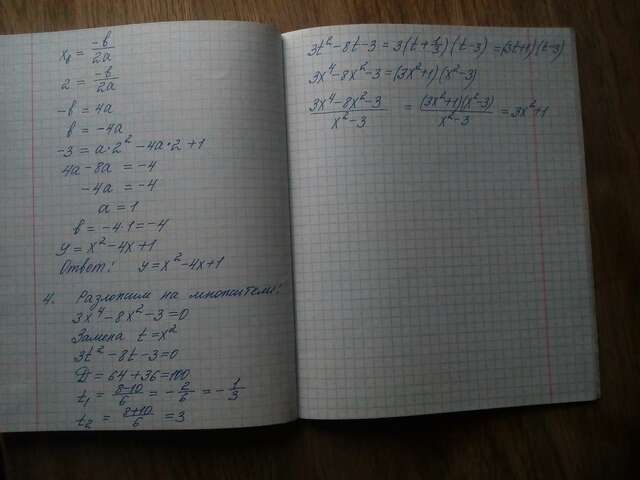 x₁ = -b/2a
2 = -b/2a
-b = 4a
b = -4a
-3 = a·2² - 4a·2 + 1
4a - 8a = -4
-4a = -4
a = 1
b = -4·1 = -4
y = x² - 4x + 1
Ответ: y = x² - 4x + 1
4. Разложим на множители:
3x⁴ - 8x² - 3 = 0
Замена t = x²
3t² - 8t - 3 = 0
D = 64 + 36 = 100
t₁ = (8-10)/6 = -2/6 = -1/3
t₂ = (8+10)/6 = 3
3t² - 8t - 3 = 3(t + 1/3)(t - 3) = (3t+1)(t-3)
3x⁴ - 8x² - 3 = (3x²+1)(x²-3)
(3x⁴ - 8x² - 3)/(x² - 3) = (3x²+1)(x²-3)/(x²-3) = 3x²+1